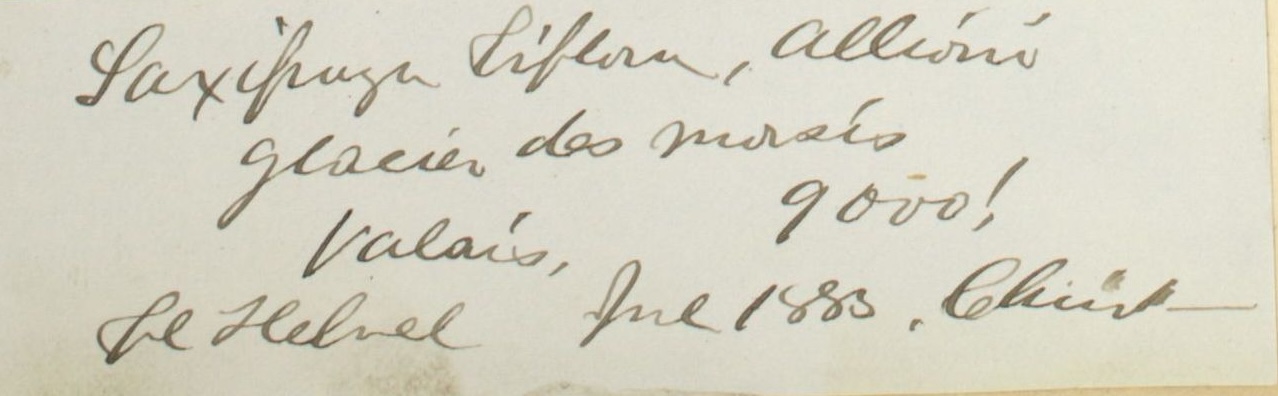 Saxifraga biflora, Allioni
glacier des
9000!
Valais,
Fl Helvet Jul 1883. Christ